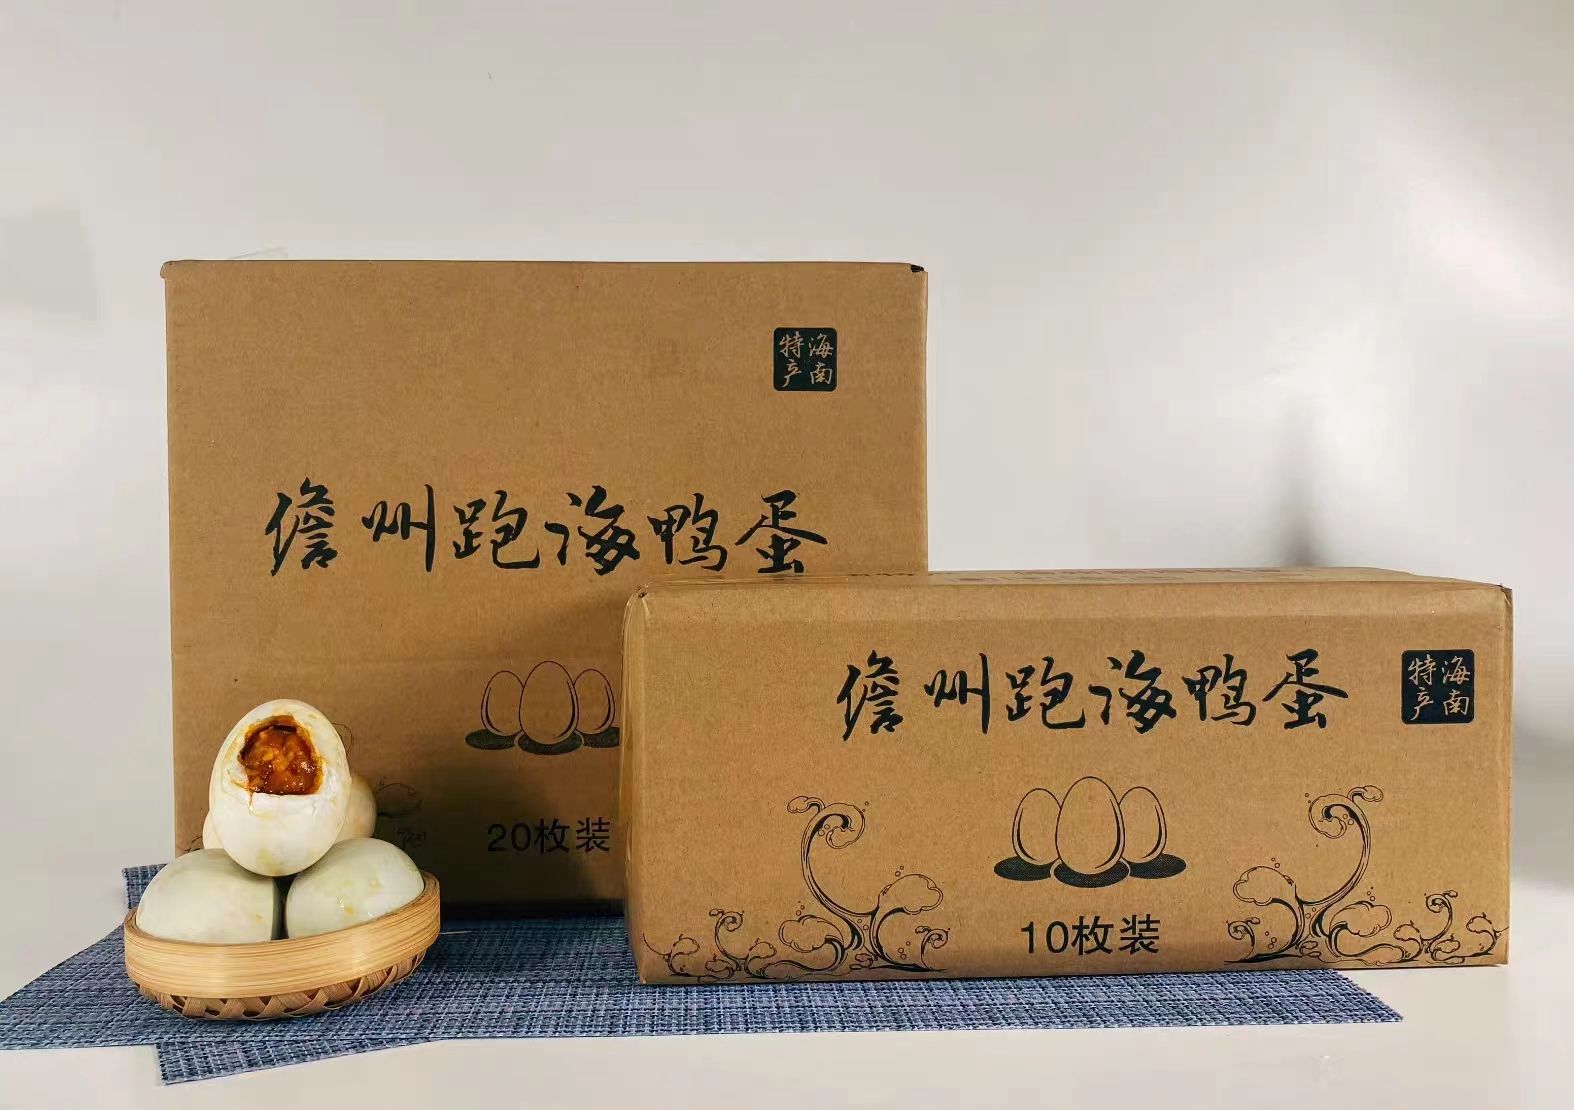 海南
特产
儋州跑海鸭蛋
20枚装
儋州跑海鸭蛋
海南
特产
10枚装